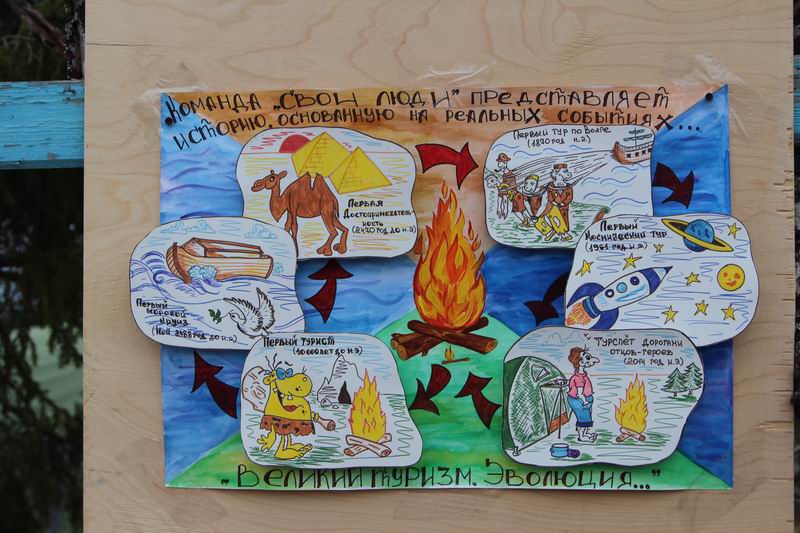 Команда „Свои люди" представляет
историю, основанную на реальных событиях...
Первый тур по Волге
(1870 год н.э)
Первая
Достопримечатель-
ность
(2470 год до н.э)
Первый
Космический тур
(1961 год н.э)
Первый
морской
круиз
(Ной. 2488 год до н.э)
Первый турист
(40000 лет до н.э)
Турслёт дорогами
отцов-героев
(2014 год н.э)
„Великий туризм. Эволюция..."